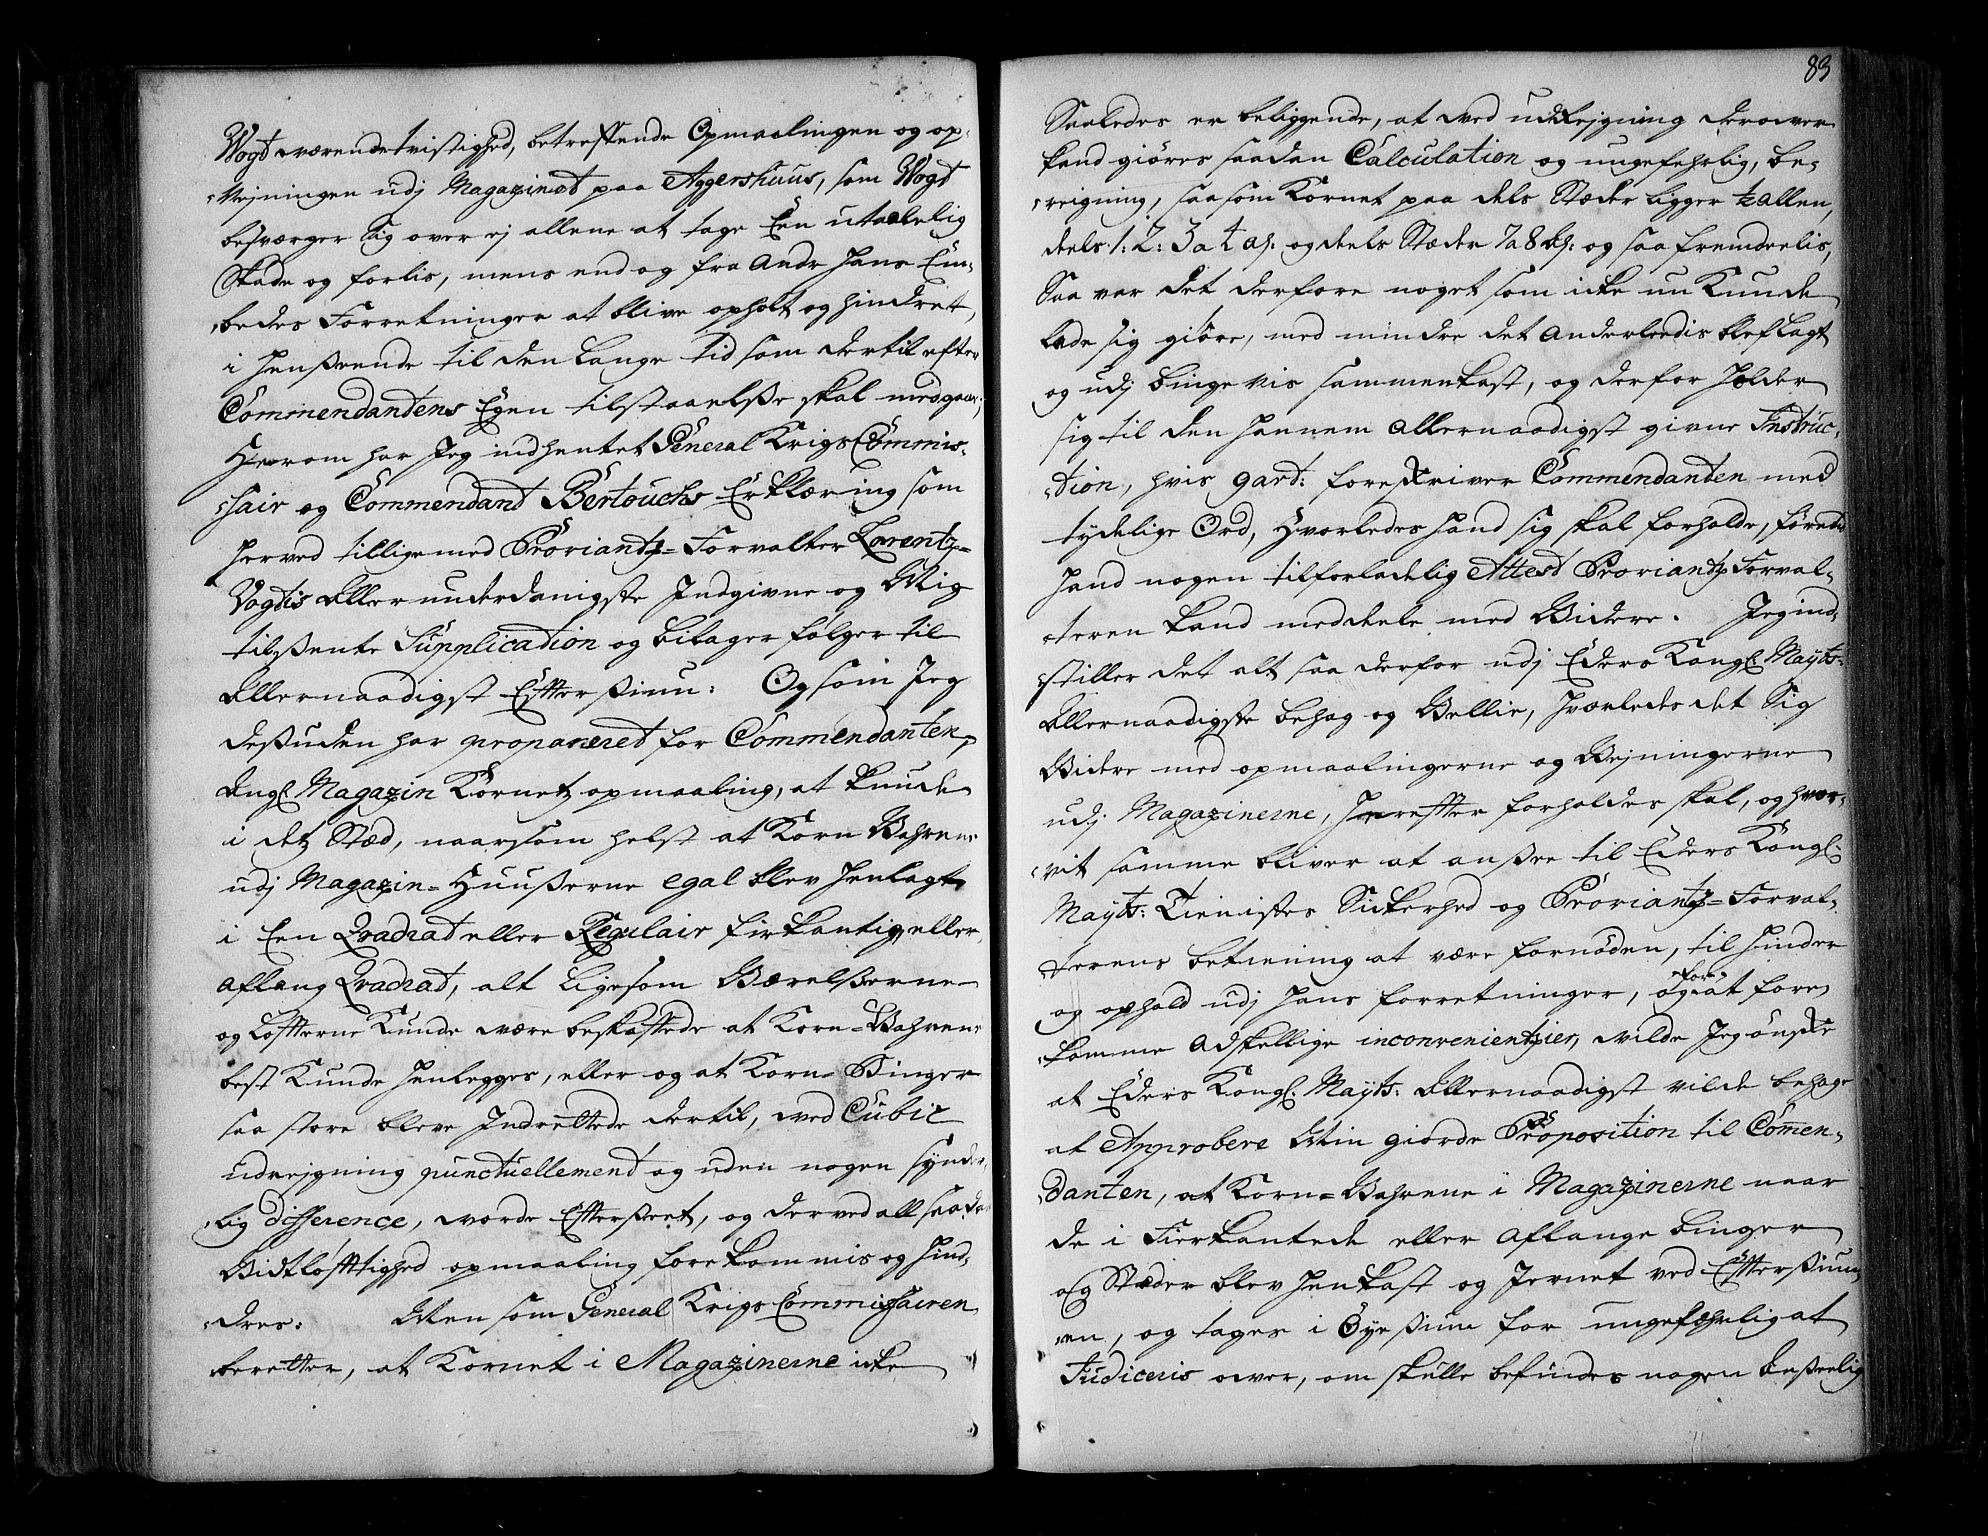 Vogt værende tvistighed, betreffende Opmaalingen og op-
Vejningen udj Magazinet paa Aggershuus, som Vogt
besværger sig over ej allene at tage Een utaalelig
Skade og forlis, mens end og fra Andr hans Em-
bedes Forretninger at blive opholt og hindret,
i henßeende til den lange tid som dertil efter
Commendantens Egen tilstaaelße skal medgaae,
Herom har Jeg indhentet General Krigs Commis-
sair og Commendant Bertouchs Erklæring som
herved tillige med Proviantz-Forvalter Lorentz
Vogtis Allerunderdanigste Indgivne og Mig
tilßente Supplication og bilager følger til
Allernaadigst Eftterßiun: Og som Jeg
desuden har proponeret for Commendanten,
Angl. Magazin Kornetz opmaaling, at kunde
i detz Stæd, naarsom helst at Korn Vahrene
udj Magazin-Huußerne egal blev henlagt
i Een Qvadrat eller Regulair firkantig, eller
aflang Qvadrat, alt ligesom Værelßerne
og Loffterne Kunde være beskaffede at Korn-Vahrene
best Kunde henlegges, eller og at Korn-Binger
saa store bleve Indrettede dertil, ved Cubic
udreigning punctuellement og uden nogen synder-
lig difference, vorde Eftterßeet, og derved all saadan
Vidtløfttighed opmaaling forekommis og hind-
dres. Men som General Krigs Commissairen
beretter, at Kornet i Magazinerne icke
83
Saaledes er beliggende, at ved udreigning derover
kand giøres saadan Calculation og ungefehrlig, be-
reigning, saasom Kornet paa dels Stæder ligger ½ allen,
deels 1: 2: 3 a 4 al: og deels Stæder 7 a 8 al: og saa fremdeelis,
Saa var det derfore noget som icke nu Kunde
lade sig giøre, med mindre det anderleedis blef lagt
og udj binge vis sammenkast, og derfor holder
sig til den hannem allernaadigst givne Instruc-
tion, hvis 9art: foreskriver Commendanten med
tydelige Ord, hvorledes hand sig skal forholde, førend
hand nogen tilforladelig Attest Proviantz Forval-
teren kand meddele med Videre. Jeg ind-
stiller det alt saa derfor udj Eders Kongl. Mayts:
Allernaadigste behag og Vellie, hvorledes det Sig
Videre med opmaalingerne og Vejningerne
udj Magazinerne, herefter forholdes skal, og hvor-
vit samme bliver at anßee til Eders Kongl:
Mayts: Tienistes Sickerhed og Proviantz-Forval-
terens betiening at være fornøden, til hinder
og ophold udj hans forretninger, og for at fore
komme adskellige inconvenientzier, vilde Jeg ønske
at Eders Kongl. Mayts: Allernaadigst vilde behage
at Approbere Min giorde Proposition til Comen-
danten, at Korn-Vahrene i Magazinerne naar
de i Fierkantede eller aflange binger
og Stæder blev henkast og Jevnet ved Eftterßiun-
en, og tages i Øyeßiun for ungefæhrlig at
Judiceris over, om skulle befindes nogen kießeelig